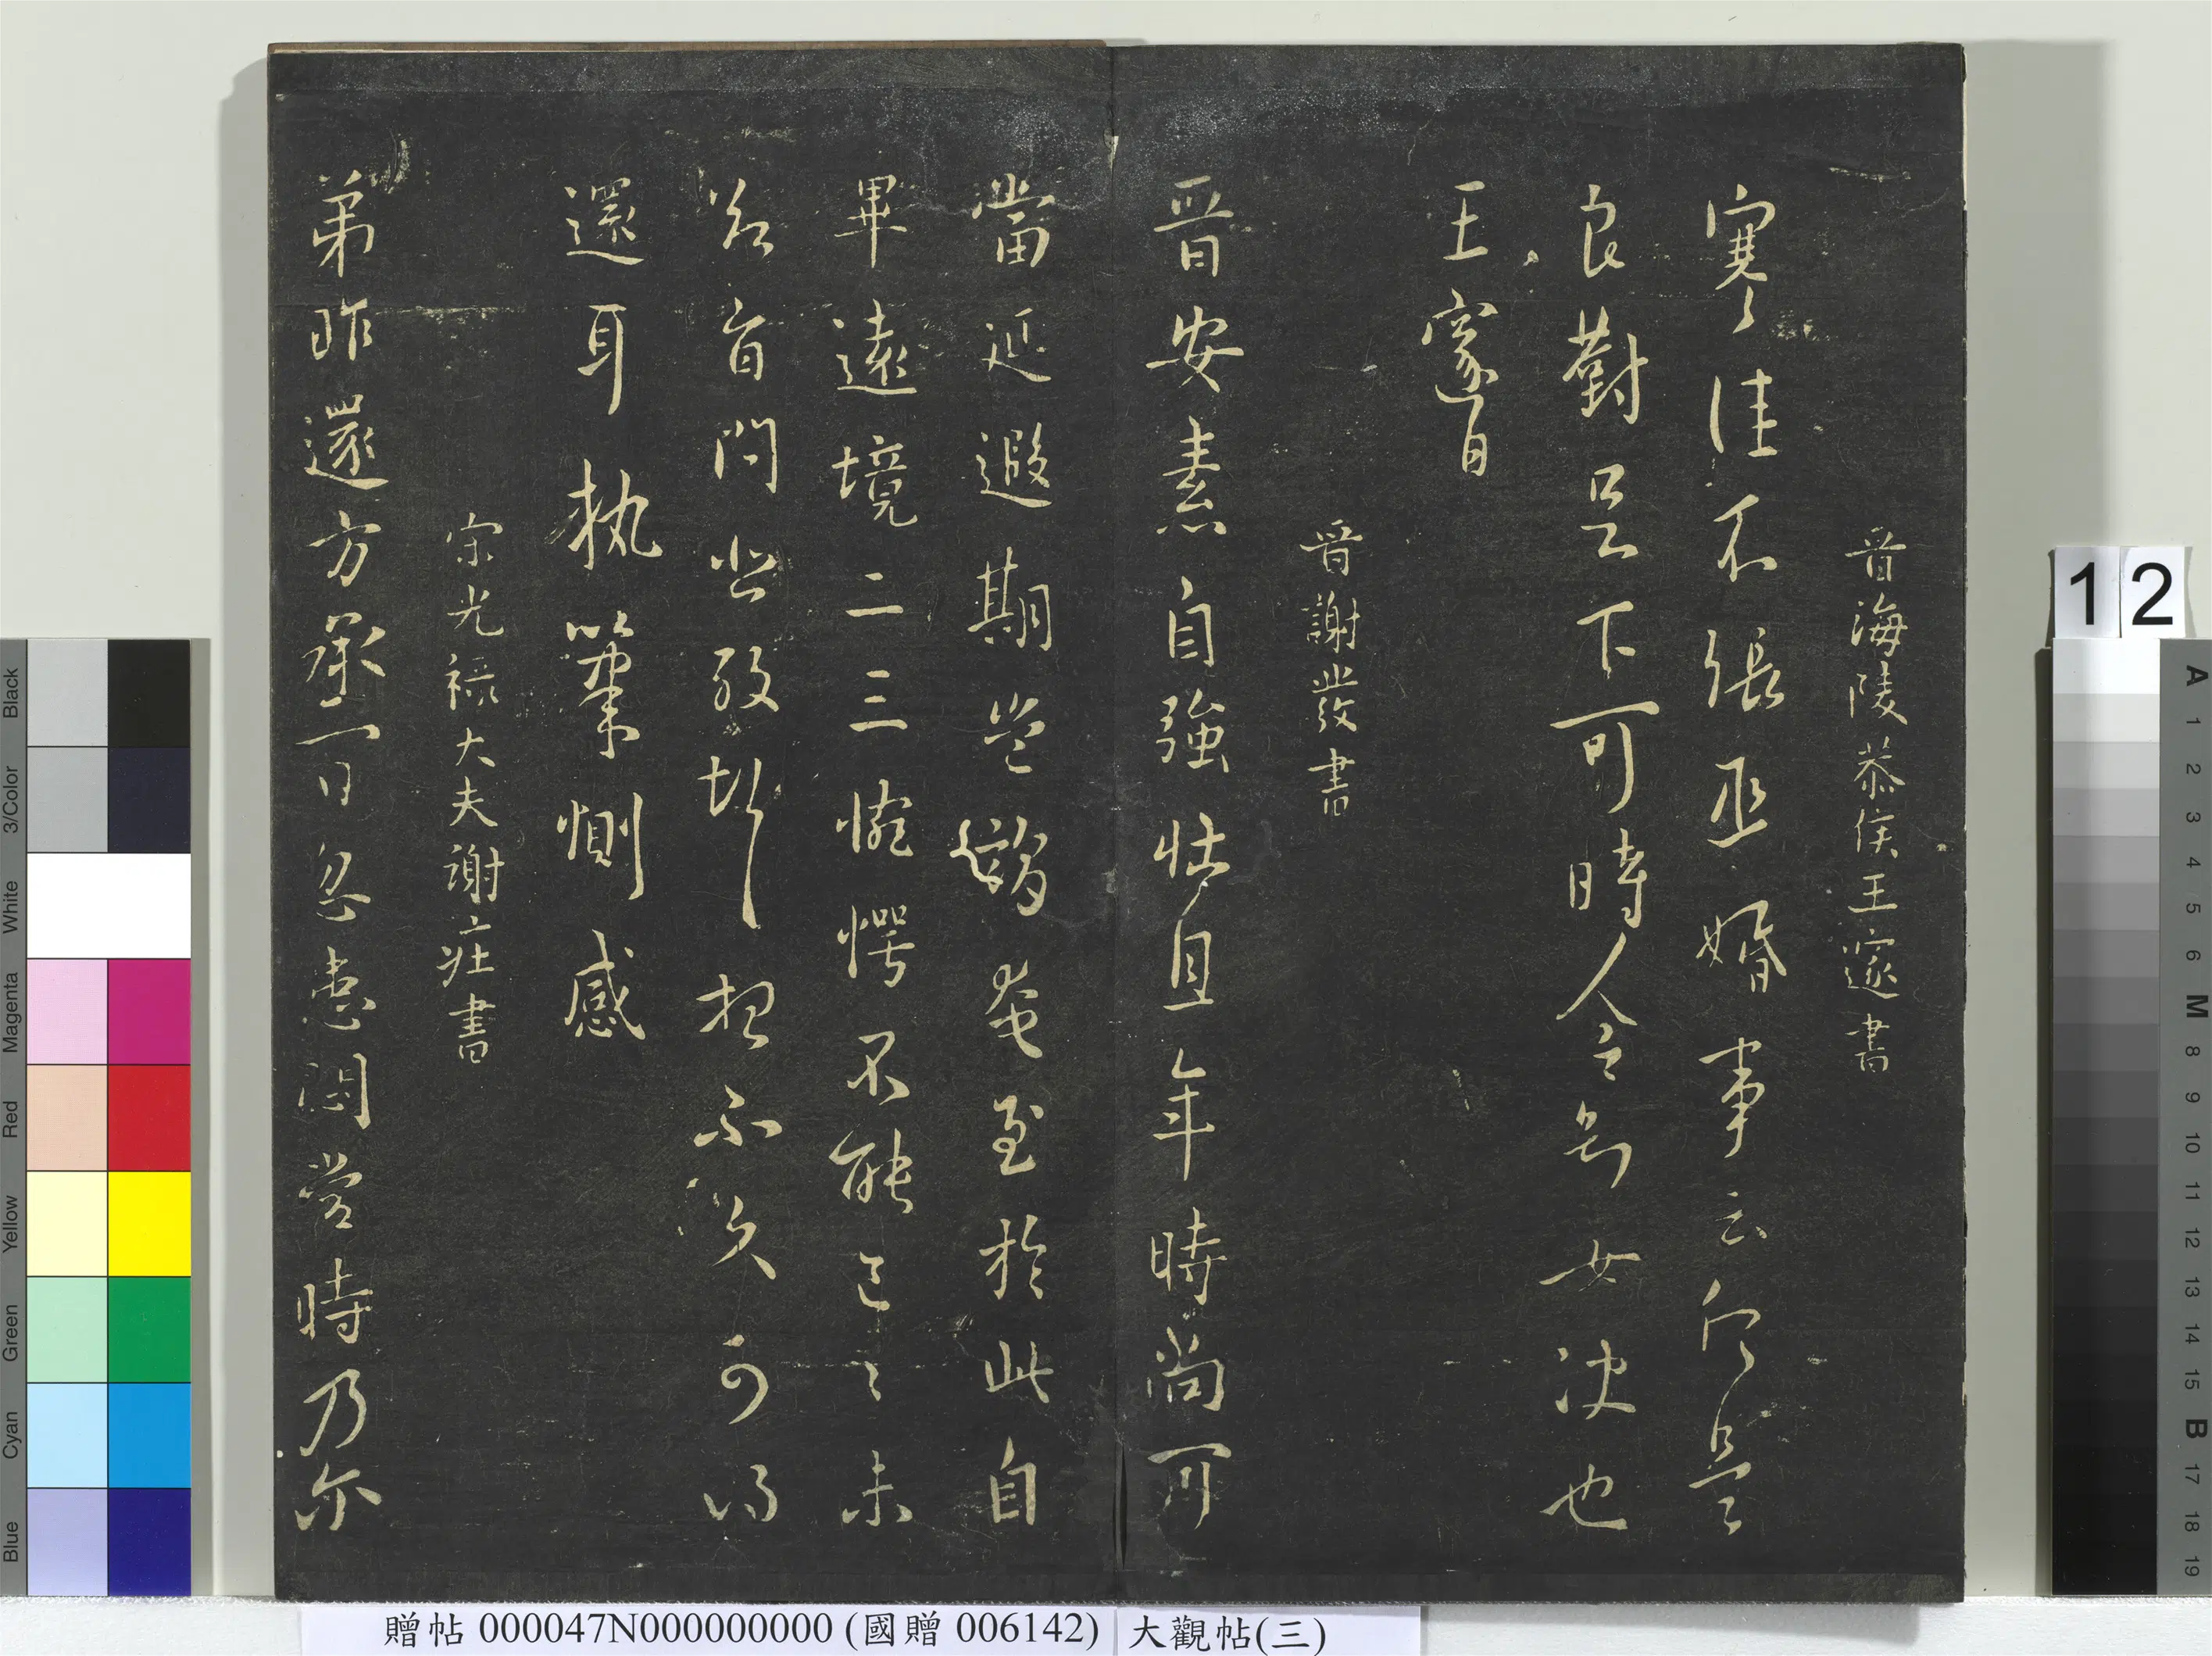 晉海陵恭侯王邃書
寒佳不張丞婚事云何是
良對足下可時人令知女決也
王邃白
晉謝發書
晉安素自強壯且年時尚可
當延遐期豈謂奄至於此自
畢遠境二三惋愕不能已已未
問悲想不久可得
還耳執筆惻感
宋光祿大夫謝莊書
弟昨還方承一日忽患悶當時乃爾
12
贈帖 000047N000000000 (國贈 006142) 大觀帖(三)
Black
3/Color
White
Magenta
Red
Yellow
Green
Cyan
Blue
A
1
2
3
4
5
6
M
8
9
10
11
12
13
14
15
B
17
18
19